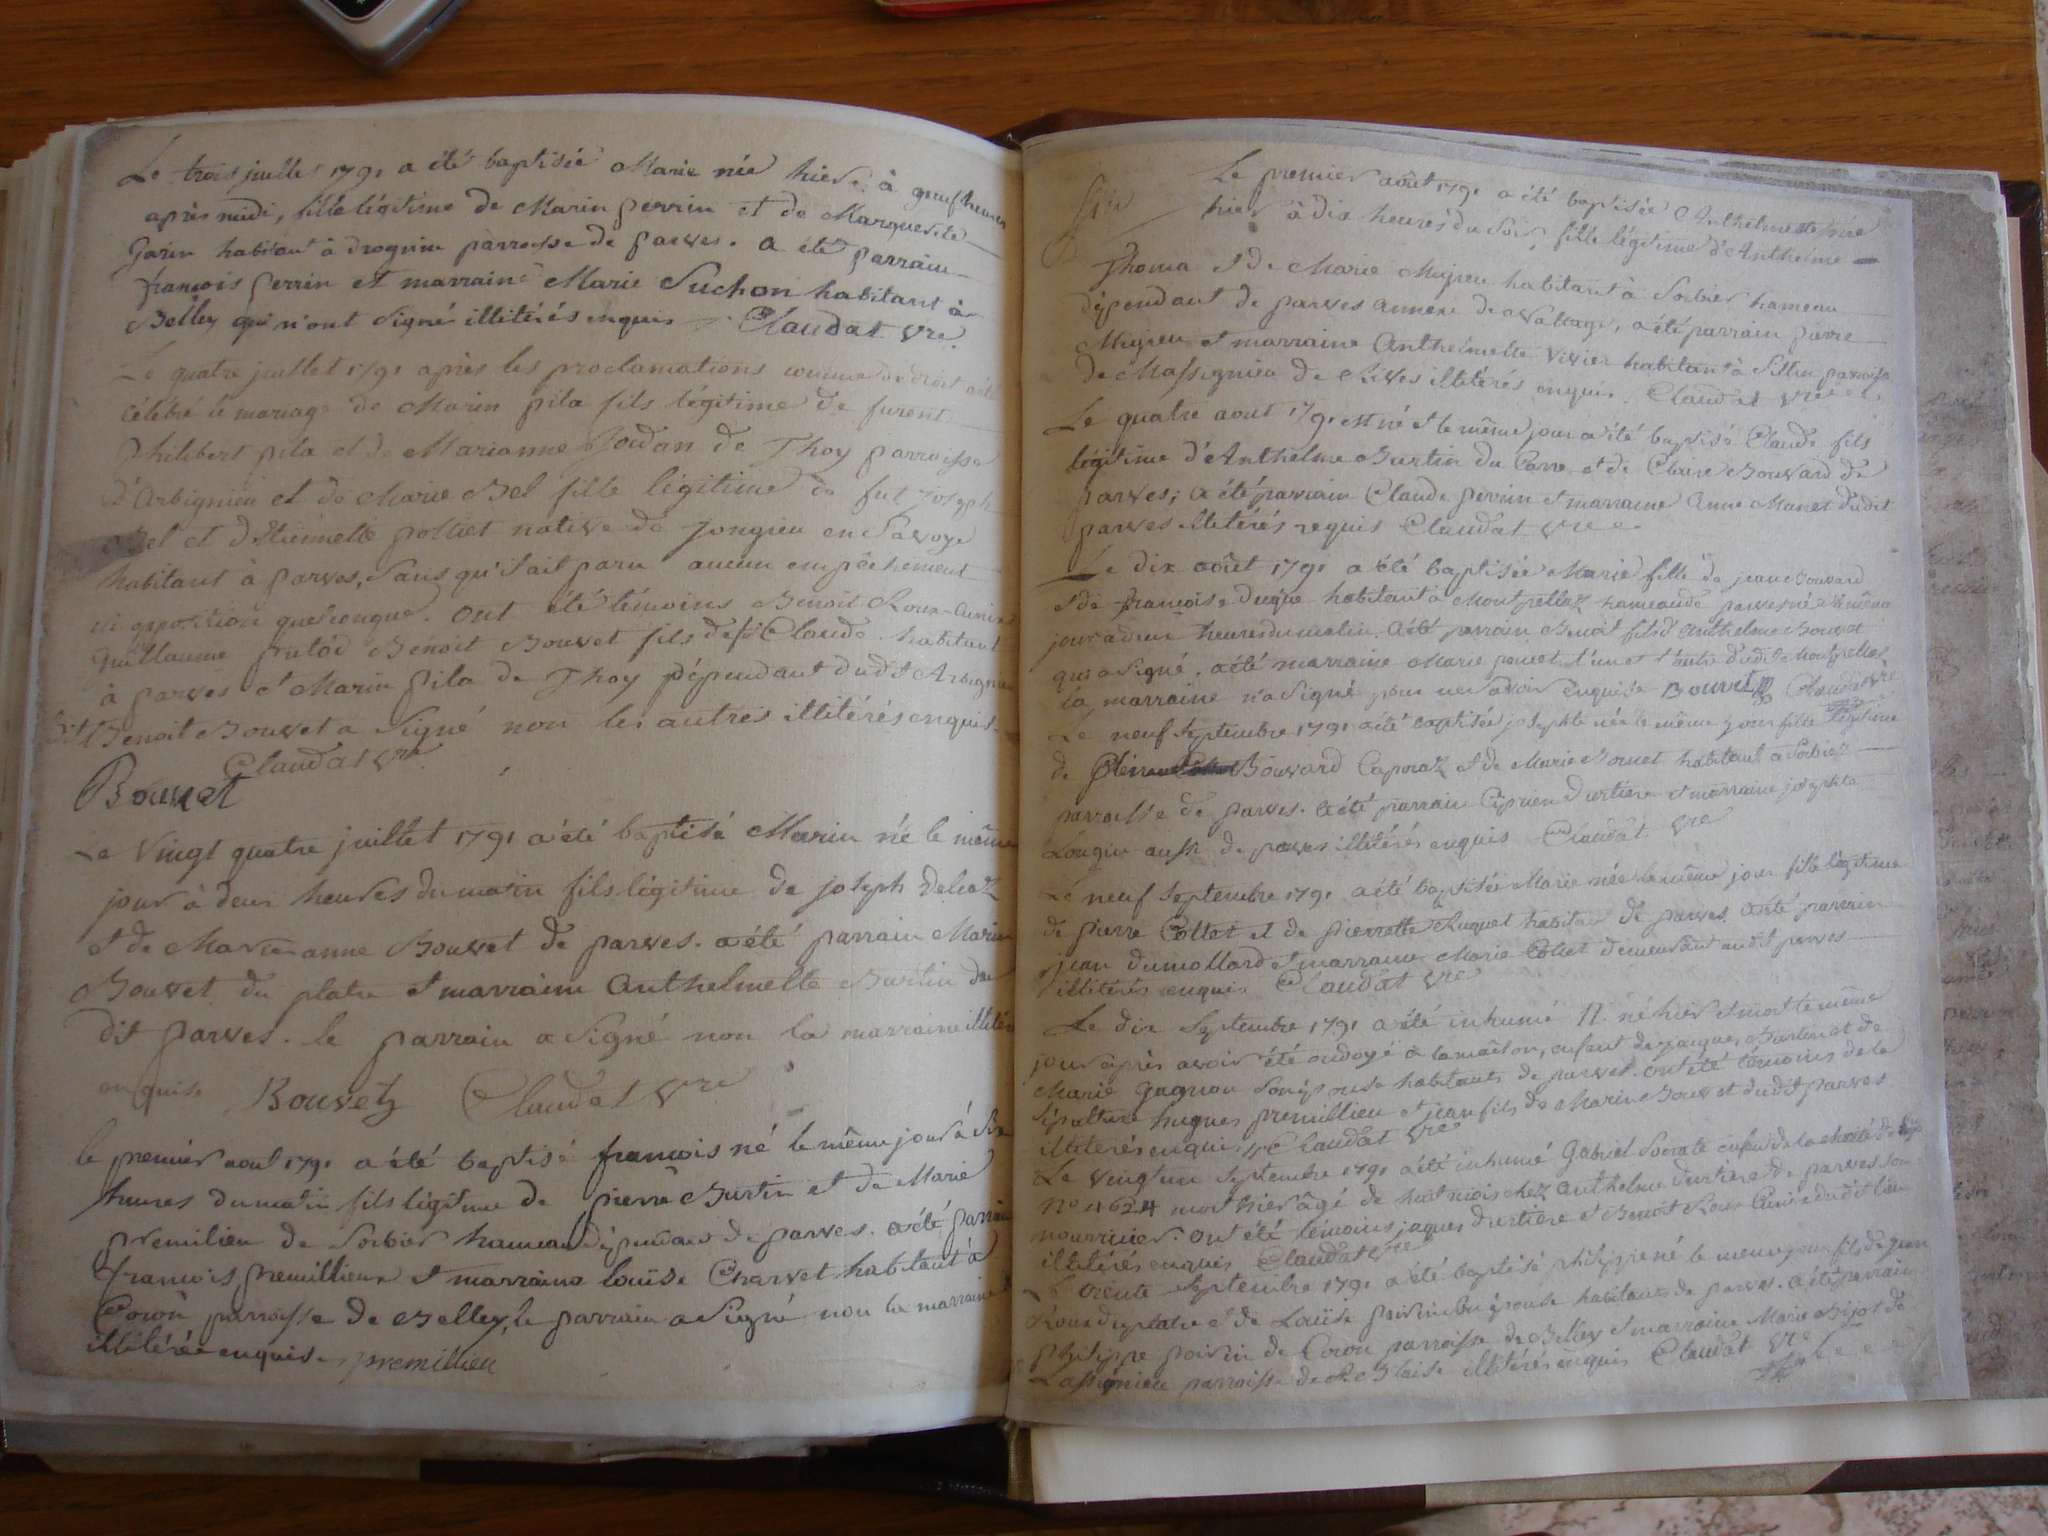 Le trois juillet 1791 a été baptisée Marie née hier à neuf heures
après midi, fille légitime de Marin perrin et de Marguerite
Garin habitant à drognin parroisse de parves. a été parrain
françois perrin et marraine Marie Suchon habitant à
Belley qui n'ont signé illitérés enquis Claudat vre.
Le quatre juillet 1791 après les proclamations comme de droit a été
célébré le mariage de Marin pila fils légitime de furent
Philibert pila et de Marianne Jordan de Thoy parroisse
d'Arbignieu et de Marie Bel fille légitime de fut joseph
Bel et d'Etiennette pollier native de Jongieu en Savoye
habitant à parves, sans qu'il ait paru aucun empêchement
ni opposition quelconque. ont été témoins Benoit Roux-
Guillaume Benoit Bouvet fils de Claude habitant
à parves et Marin pila de Thoy dépendant dudt Arbignieu
Benoit Bouvet a signé non les autres illitérés enquis.
Claudat vre
Bouvet
Le vingt quatre juillet 1791 a été baptisé Marin né le même
jour à deux heures du matin fils légitime de joseph
et de Marie anne Bouvet de parves. a été parrain Marin
Bouvet du platre et marraine Anthelmette Burtin du
dit parves. le parrain a signé non la marraine illitérée
enquise Bouvet Claudat vre
le premier aout 1791 a été baptisé françois né le même jour à six
heures du matin fils légitime de pierre Burtin et de Marie
premilieu de Sorbier hameau dépendant de parves. a été parrain
françois premillieu et marraine louise Charvet habitant à
Coron parroisse de Belley, le parrain a signé non la marraine
illitérée enquise. premillieu
Le premier août 1791 a été baptisée Anthelmette née
hier à dix heures du soir, fille légitime d'Anthelme
Thoma et de Marie Mugieu habitant à Sorbier hameau
dépendant de parves annexe de, a été parrain pierre
Mugieu et marraine Anthelmette Vivier habitant à parroisse
de Massignieu de Rives illitérés enquis. Claudat vre
Le quatre aout 1791 est né et le même jour a été baptisé Claude fils
légitime d'Anthelme Burtin du Carre et de Claire Bouvard de
parves; a été parrain Claude perrin et marraine Anne Munet dudit
parves illitérés requis Claudat vre
Le dix août 1791 a été baptisée Marie fille de jean Bouvard
et de françoise habitant à Montpellaz hameau de parves née le même
jour à deux heures du matin. a été parrain Benoit fils d'Anthelme Bouvet
qui a signé. a été marraine Marie l'un et l'autre dudit Montpellaz
la marraine n'a signé pour ne savoir enquise Bouvet Claudat vre
Le neuf septembre 1791 a été baptisée josephte née le même jour fille légitime
de Bouvard Caporaz et de Marie Bornet habitant à Sorbier
parroisse de parves. a été parrain Ciprien Durtiere et marraine josephte
Longin aussi de parves illitérés enquis Claudat vre
Le neuf septembre 1791 a été baptisée Marie née le même jour fille légitime
de pierre Collet et de pierrette Ruquet habitant de parves. a été parrain
jean dumollard et marraine Marie Collet demeurant audit parves
illitérés enquis Claudat vre
Le dix septembre 1791 a été inhumé N. né hier et mort le même
jour après avoir été ondoyé à la maison, enfant de jacque Burtin et de
Marie Gagnon son épouse habitants de parves. ont été témoins de la
sépulture hugues premillieu et jean fils de Marin Bouvet dudit parves
illitérés enquis Claudat vre
Le vingt un septembre 1791 a été inhumé Gabriel Socrate enfant de la charité de
No 4624 mort hier âgé de huit mois chez Anthelme Durtiere de parves son
nourricier. ont été témoins jaques Durtiere et Benoit Roux dudit lieu
illitérés enquis Claudat vre
Le trente septembre 1791 a été baptisé philippe né le meme jour fils de jean
Roux du platre et de Louise poirin son épouse habitants de parves. a été parrain
philippe poirin de Coron parroisse de Belley et marraine Marie Bijot de
Lassignieu parroisse de St Blaise illitérés enquis Claudat vre